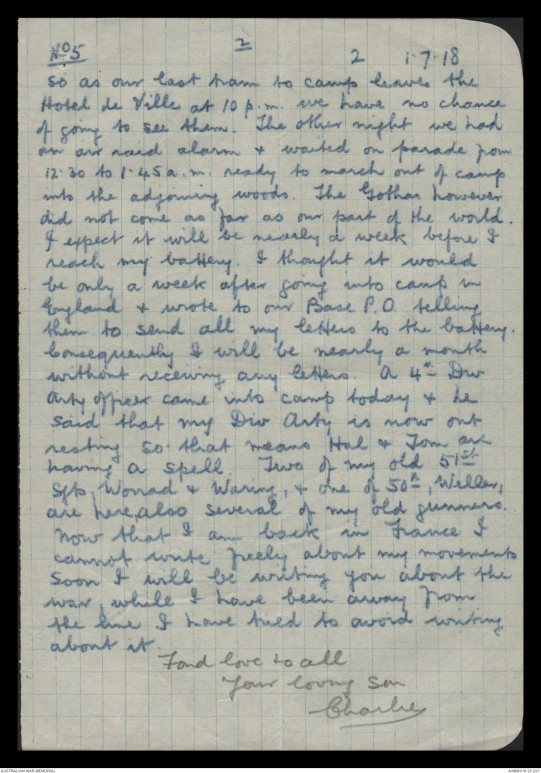 No 5 2 2 1.7.18
so as our last tram to camp leaves the
Hotel de Ville at 10 p.m. we have no chance
of going to see them. The other night we had
an air raid alarm & waited on parade from
12.30 to 1.45 a.m. ready to march out of camp
into the adjoining woods. The Gothas however
did not come as far as our part of the world.
I expect it will be nearly a week before I
reach my battery. I thought it would
be only a week after going into camp in
England & wrote to our Base P.O. telling
them to send all my letters to the battery.
Consequently I will be nearly a month
without receiving any letters. A 4th Div
Arty officer came into camp today & he
said that my Div Arty is now out
resting so that means Hal & Tom are
having a spell. Two of my old 51st
Sgts, Worrad & Waring, & one of 50th, Weller,
are here, also several of my old gunners.
Now that I am back in France I
cannot write freely about my movements
Soon I will be writing you about the
war, while I have been away from
the line I have tried to avoid writing
about it
Fond love to all
Your loving son
Charlie
AUSTRALIAN WAR MEMORIAL